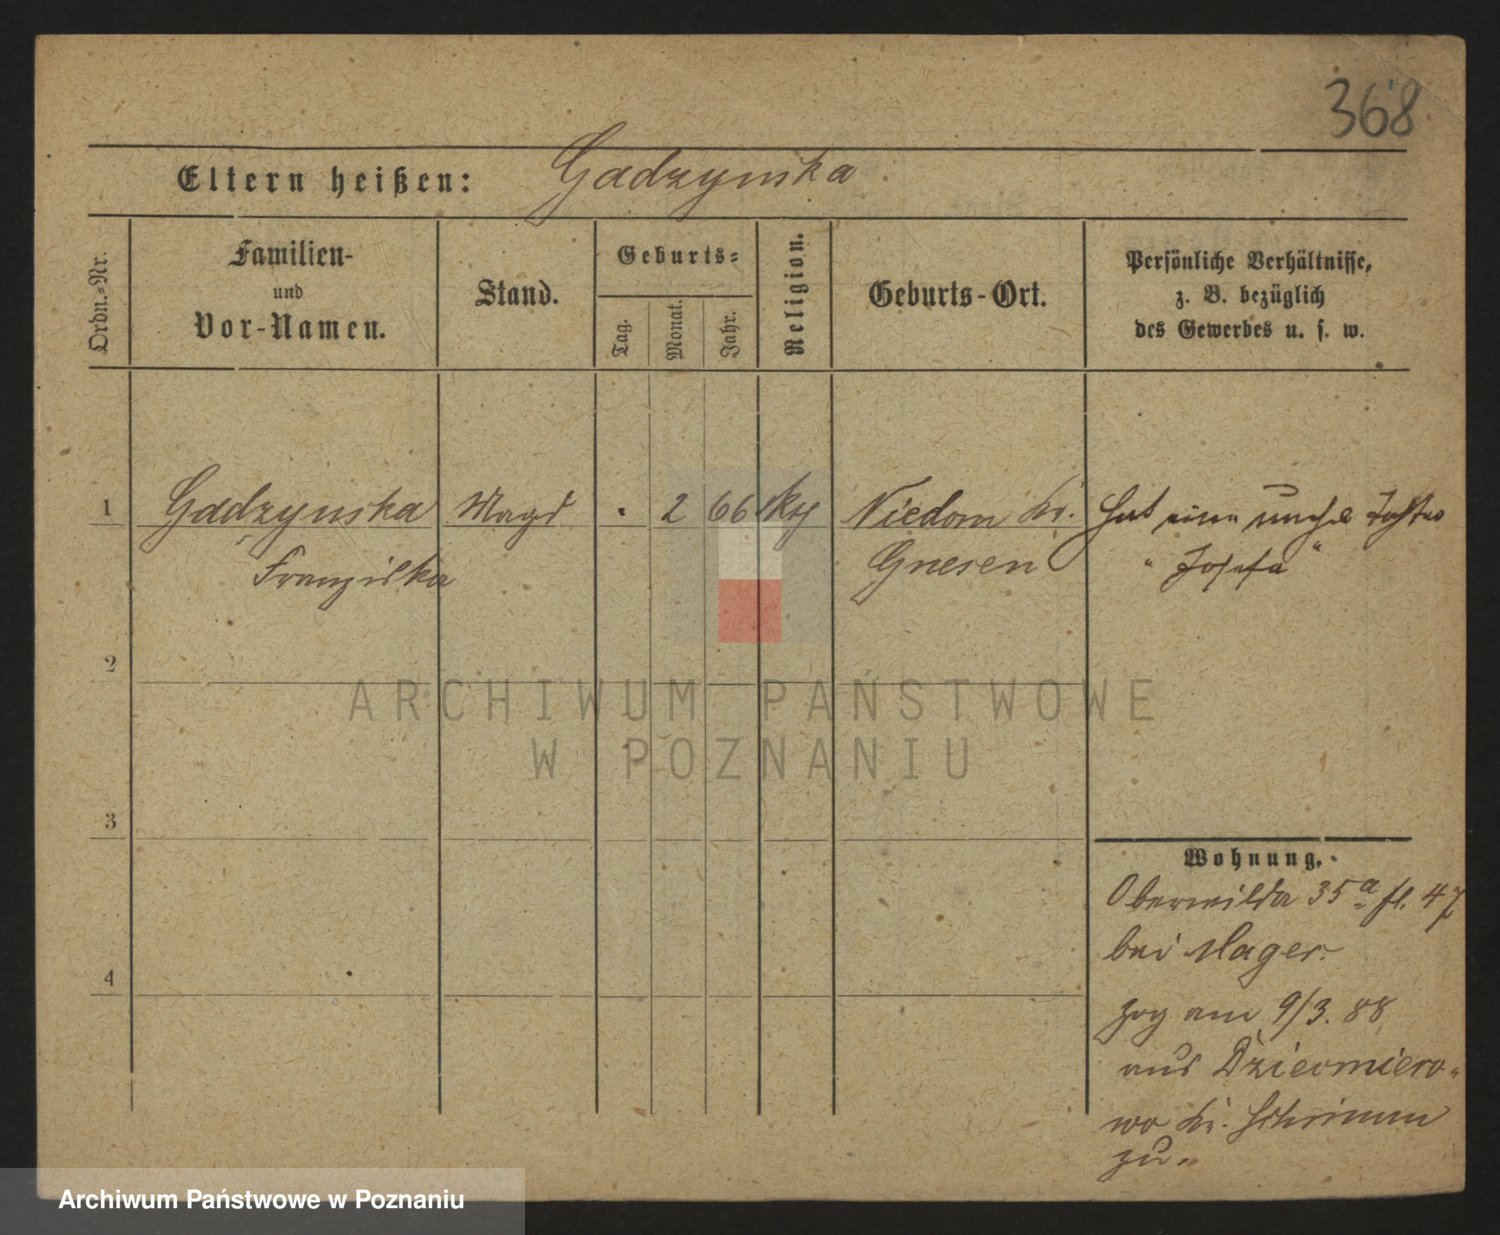 368
Eltern heißen: Gadzynska
Ordn.-Nr.
Familien-
und
Vor-Namen.
Stand.
Geburts-
Tag.
Monat.
Jahr.
Religion.
Geburts-Ort.
Persönliche Verhältnisse,
z. B. bezüglich
des Gewerbes u. s. w.
1 Gadzynska Magd . 2 66 Niedom Kr. Hat eine unehel Tochter
Franziska Gnesen "Josefa"
2
3
4
Wohnung.
Oberwilda 35a fl. 47
bei Mager.
zog am 9/3. 88
aus Dziecmiero-
wo Kr. Schrimm
zu.
ARCHIWUM PAŃSTWOWE
W POZNANIU
Archiwum Państwowe w Poznaniu